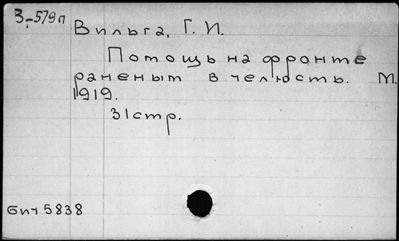 З-579п
Вильга, Г. И.
Потощь на фронте
раненым в челюсть. М.
1919.
31стр.
бпч 5838